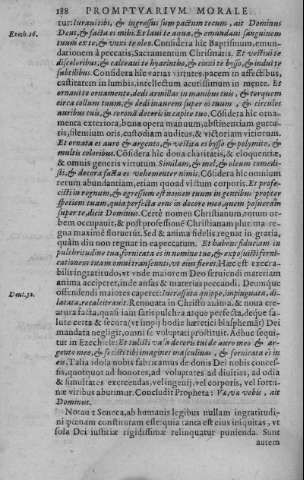 188 PROMPTVARIVM MORALE.
tur: Iuraui tibi, & ingressus sum pactum tecum, ait Dominus
Ezech. 16. Deus, & facta es mihi. Et laui te aqua, & emundaui sanguinem
tuum ex te, & vnxi te oleo. Considera hîc Baptismum, emun-
dationem à peccatis, Sacramentum Chrismatis. Et vestiui te
discoloribus, & calceaui te hyacintho, & cinxi te bysso, & indui te
subtilibus. Considera hîc varias virtutes, pacem in affectibus,
castitatem in lumbis, intellectum acutissimum in mente. Et
ornaui te ornamento, dedi armillas in manibus tuis, & torquem
circa collum tuum, & dedi inaurem super os tuum, & circulos
auribus tuis, & coronã decoris in capite tuo. Cõsidera hîc orna-
menta exteriora, bona opera manuum, abstinentiam guttu-
ris, silentium oris, custodiam auditus, & victoriam vitiorum.
Et ornata es auro & argento, & vestita es bysso & polymito, &
multis coloribus. Cõsidera hîc dona charitatis, & eloquentiæ,
& omnis generis virtutum. Similam, & mel, & oleum comedi-
sti, & decora facta es vehementer nimis. Cõsidera hîc omnium
rerum abundantiam, etiam quoad victum corporis. Et profe-
cisti in regnum, & egressum est nomen tuum in gentibus propter
speciem tuam, quia perfecta eras in decore meo, quem posueram
super te, dicit Dominus. Certè nomen Christianum, totum or-
bem occupauit, & post professionē Christianam plurima re-
gna maximè floruerūt. Sed & anima fidelis regnat in gratia,
quàm diu non regnat in ea peccatum. Et habens fiduciam in
pulchritudine tua, fornicata es in nomine tuo, & exposuisti forni-
cationem tuam omni transeunti, vt eius fieres. Hæc est execra-
bilis ingratitudo, vt vnde maiorem Deo seruiendi materiam
anima acciperet, inde ansas & materias peccandi. Deumque
Deut. 32. offendendi maiores caperet. Incrassata quippe, impinguata, di-
latata, recalcitrauit. Renouata in Christo anima, & noua crea-
tura facta, quasi iam satis pulchra atque perfecta, deque sa-
lute certa & secura (vt impij hodie hæretici blasphemāt) Dei
mandata negligit, omni se voluptati prostituit. Adhuc sequi-
tur in Ezechiele: Et tulisti vasa decoris tui de auro meo & ar-
gento meo, & fecisti tibi imagines masculinas, & fornicata es in
eis. Talia idola nobis fabricamus de donis Dei nobis conces-
sis, quotquot ad honores, ad voluptates, ad diuitias, ad odia
& simultates exercendas, vel ingenij, vel corporis, vel fortu-
næ viribus abutimur. Concludit Propheta: Væ, væ vobis, ait
Dominus.
Notauit Seneca, ab humanis legibus nullam ingratitudi-
ni pœnam constitutam esse, quia tanta est eius iniquitas, vt
sola Dei iustitiæ rigidissimæ relinquatur punienda. Sunt
autem